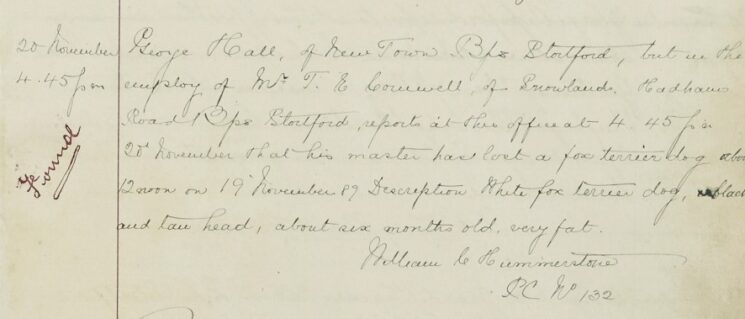 20 November
4.45 pm
Found
George Hall, of New Town Bps Stortford, but in the
employ of Mr T. E Cornwell, of Snowlands, Hadham
Road Bps Stortford, reports at this office at 4.45 pm
20th November that his master has lost a fox terrier dog about
12 noon on 19th November 89 Description White fox terrier dog, black
and tan head, about six months old, very fat.
William C Hummerstone
PC No 132